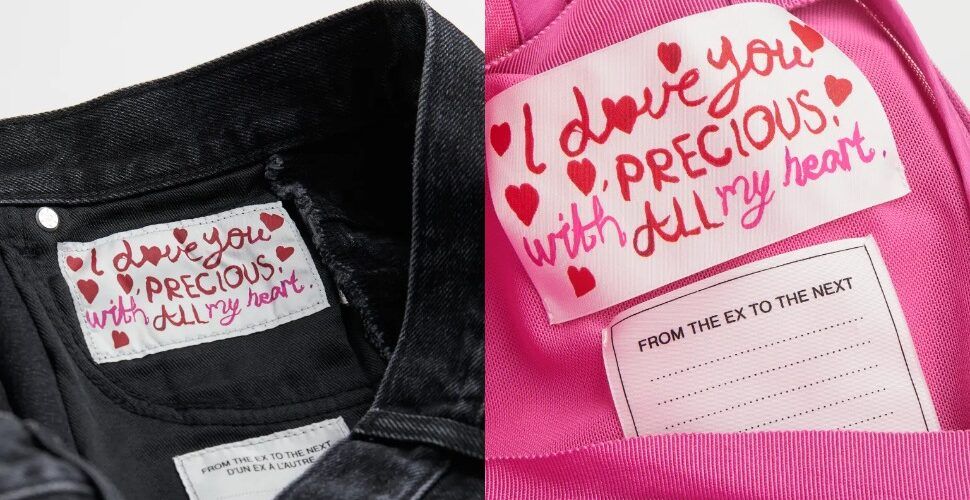 I love you
, PRECIOUS,
with ALL my heart.
FROM THE EX TO THE NEXT
D'UN EX À L'AUTRE
I love you
, PRECIOUS,
with ALL my heart.
FROM THE EX TO THE NEXT